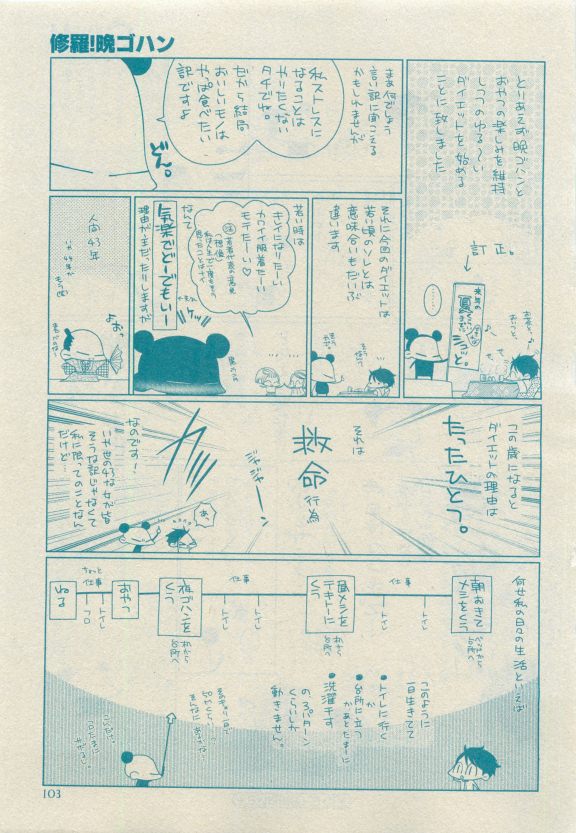 修羅!晩ゴハン
とりあえず晩ゴハンと
おやつの楽しみを維持
しつつのゆる〜い
ダイエットを始める
ことに致しました
訂正。
来年の
夏
まあ何でしょう
言い訳に聞こえる
かもしれませんが
私ストレスに
なることは
やりたくない
タチでね。
だから結局
おいしいモノは
やっぱ食べたい
訳ですよ
どん。
それに今回のダイエットは
若い頃のソレとは
意味合いもだいぶ
違います
若い時は
キレイになりたーい
カワイイ服着たーい
モテたーい♡
なんて
気楽でどーでもいー
理由が主だったりしますが
人間43年
この歳になると
ダイエットの理由は
たったひとつ。
それは
救命
行為
ジャジャーン!
なのです!
いや世の43な女が皆
そうな訳じゃなくて
私に限ってのことなん
だけど…
あ
何せ私の日々の生活といえば
朝おきて
メシをくう
仕事
トイレ
昼メシを
テキトーに
くう
仕事
トイレ
トイレ
夜ゴハンを
くう
おやつ
ちょっと
仕事
トイレ
フロ
ねる
このように
一日生きてて
●トイレに行く
か
●台所に立つ
かあとたまーに
●洗濯干す
の3パターン
くらいしか
動きません。
103